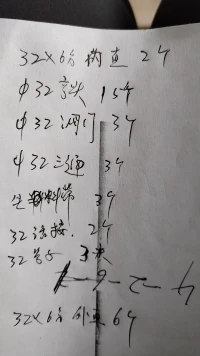 32×6分内直 2个
φ32弯头 15个
φ32阀门 3个
φ32三通 3个
生料带 3个
32活接. 2个
32管子 3米
32×6分外直 6个